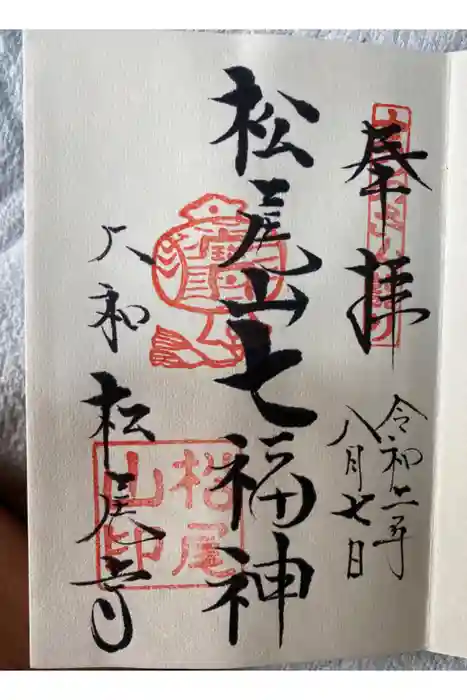 奉拝
令和二年
八月七日
松尾山七福神
大和
松尾寺
松尾
山印